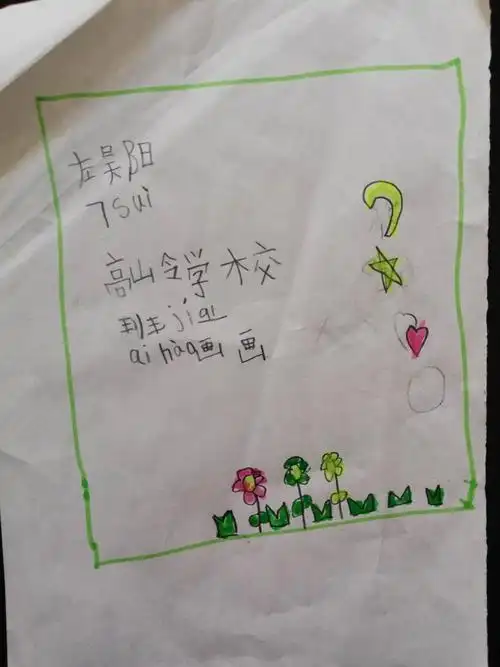 左昊阳
7sui
高山令学木交
班jia
ai hào画画